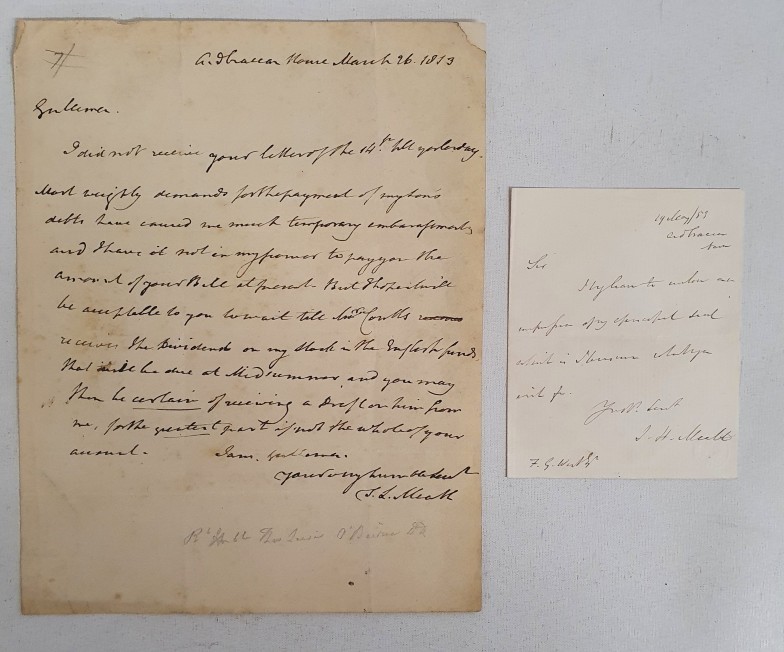 Ardbraccan House March 26. 1813
Gentlemen.
I did not receive your letter of the 14th till yesterday.
Most weighty demands for the payment of my Son's
debts have caused me much temporary embarassment,
and I have it not in my power to pay you the
amount of your Bill at present - But I hope it will
be acceptable to you to wait till Coutts
receives the Dividends on my Stock in the English funds,
that will be due at Midsummer, and you may
then be certain of receiving a Draft on him from
me, for the greatest part if not the whole of your
account. I am, Gentlemen.
Your very humble Servt
T. L. Meath
Rt Honble Thos Lewis O'Beirne DD
Ardbraccan
Navan
Sir
I to enclose an
impression of my seal
which is
Yr obt Sert
J. H. Meath
F. G. West Esqr